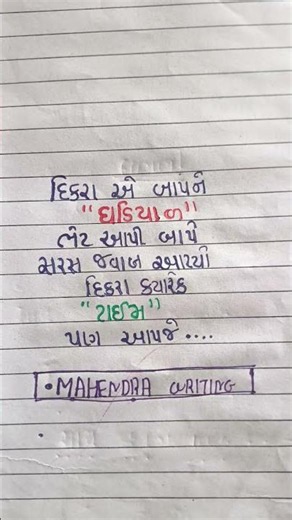 દિકરા એ બાપને
"ઘડિયાળ"
ભેટ આપી બાપે
સરસ જવાબ આપ્યો
દિકરા ક્યારેક
"ટાઈમ"
પાણ આપજે....
• MAHENDRA WRITING